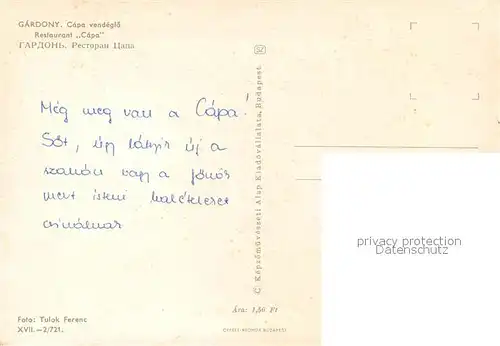 GÁRDONY. Cápa vendéglő
Restaurant „Cápa"
ГАРДОНЬ. Ресторан Цапа
Még meg van a Cápa!
Sőt, úgy látszik új a
szakács vagy a főnök
mert isteni halételeket
csinálnak
© Képzőművészeti Alap Kiadóvállalata, Budapest
privacy protection
DanskeMaler
Ára: 1,50 Ft
Foto: Tulok Ferenc
XVII.—2/721.